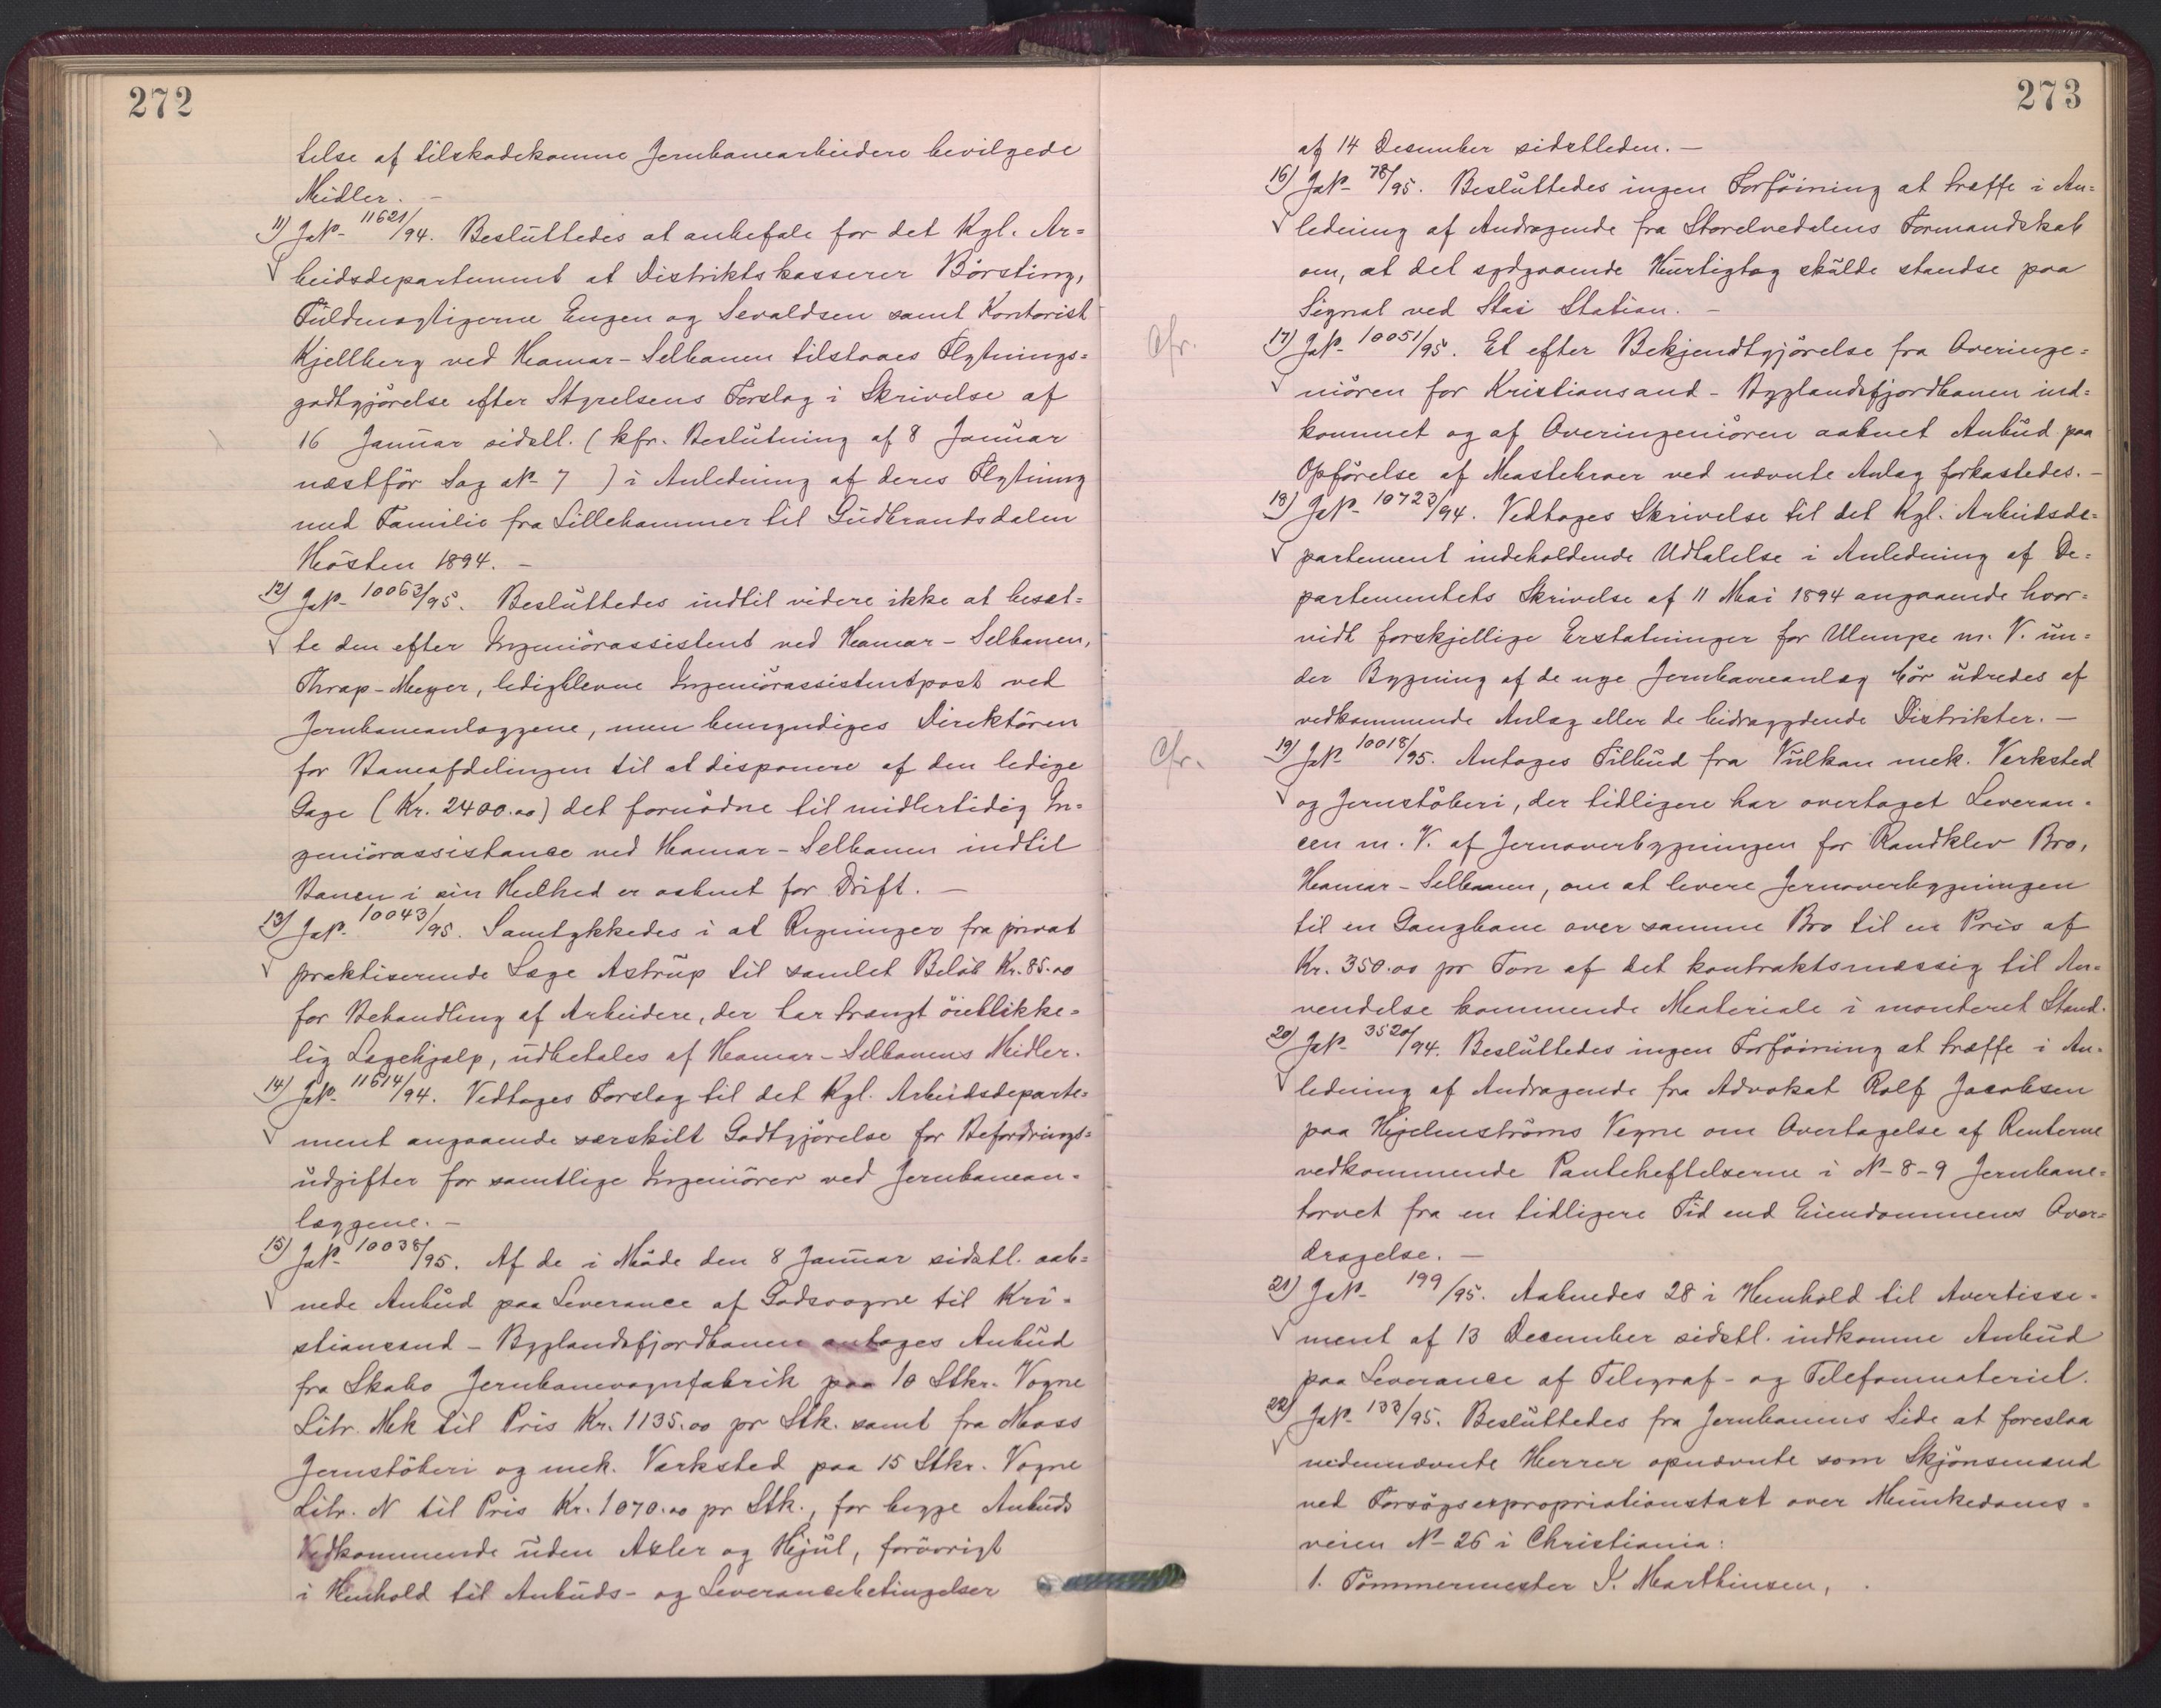 272
telse af tilskadekomne Jernbanearbeidere bevilgede
Midler. -
11) JNo 11621/94. Besluttedes at anbefale for det Kgl. Ar=
beidsdepartement at Distriktskasserer Börsting,
Fuldmægtigerne Engen og Sevaldsen samt Kontorist
Kjellberg ved Hamar-Selbanen tilstaaes Flytnings=
godtgjörelse efter Styrelsens Forslag i Skrivelse af
16 Januar sidstl. (kfr. Beslutning af 8 Januar
næstför Sag No 7 ) i Anledning af deres Flytning
med Familie fra Lillehammer til Gudbrandsdalen
Hösten 1894. -
12) JNo 10063/95. Besluttedes indtil videre ikke at besæt=
te den efter Ingeniörassistent ved Hamar-Selbanen,
Thrap-Meyer, ledigblevne Ingeniörassistentpost ved
Jernbaneanlæggene, men bemyndiges Direktören
for Baneafdelingen til at disponere af den ledige
Gage (Kr. 2400.00) det fornödne til midlertidig In=
geniörassistance ved Hamar-Selbanen indtil
Banen i sin Helhed er aabnet for Drift. -
13) JNo 10043/95. Samtykkedes i at Regninger fra privat
praktiserende Læge Astrup til samlet Belöb Kr. 85.00
for Behandling af Arbeidere, der har trængt öieblikke=
lig Lægehjælp, udbetales af Hamar-Selbanens Midler.
14) JNo 11614/94. Vedtoges Forslag til det Kgl. Arbeidsdeparte=
ment angaaende særskilt Godtgjörelse for Befordrings=
udgifter for samtlige Ingeniörer ved Jernbanean=
læggene. -
15) JNo 10038/95. Af de i Möde den 8 Januar sidstl. aab=
nede Anbud paa Leverance af Godsvogne til Kri=
stiansand - Byglandsfjordbanen antoges Anbud
fra Skabo Jernbanevognfabrik paa 10 Stkr. Vogne
Litr. Mk til Pris Kr. 1135.00 pr Stk. samt fra Moss
Jernstöberi og mek. Værksted paa 15 Stkr. Vogne
Litr. N til Pris Kr. 1070.00 pr Stk., for begge Anbuds
Vedkommende uden Axler og Hjul, forövrigt
i Henhold til Anbuds- og Leverancebetingelser
273
af 14 Desember sidstleden. -
16) JNo 78/95. Besluttedes ingen Forföining at træffe i An=
ledning af Andragende fra Storelvedalens Formandskab
om, at det sydgaaende Hurtigtog skulde standse paa
Signal ved Stai Station. -
Cfr.
17) JNo 10051/95. Et efter Bekjendtgjörelse fra Overinge=
niören for Kristiansand - Byglandsfjordbanen ind=
kommet og af Overingeniören aabnet Anbud paa
Opförelse af Mastekraner ved nævnte Anlæg forkastedes. -
18) JNo 10723/94. Vedtoges Skrivelse til det Kgl. Arbeidsde=
partement indeholdende Udtalelse i Anledning af De=
partementets Skrivelse af 11 Mai 1894 angaaende hvor=
vidt forskjellige Erstatninger for Ulempe m. V. un=
der Bygning af de nye Jernbaneanlæg bör udredes af
vedkommende Anlæg eller de bidragydende Distrikter. -
Cfr.
19) JNo 10018/95. Antoges Tilbud fra Vulkan mek. Værksted
og Jernstöberi, der tidligere har overtaget Leveran=
cen m. V. af Jernoverbygningen for Randklev Bro,
Hamar-Selbanen, om at levere Jernoverbygningen
til en Gangbane over samme Bro til en Pris af
Kr. 350.00 pr Ton af det kontraktsmæssig til An=
vendelse kommende Materiale i monteret Stand.
20) JNo 3520/94. Besluttedes ingen Forföining at træffe i An=
ledning af Andragende fra Advokat Rolf Jacobsen
paa Hjelmströms Vegne om Overtagelse af Renterne
vedkommende Panteheftelserne i No 8-9 Jernbane=
torvet fra en tidligere Tid end Eiendommens Over=
dragelse. -
21) JNo 199/95. Aabnedes 28 i Henhold til Avertisse=
ment af 13 December sidstl. indkomne Anbud
paa Leverance af Telegraf- og Telefonmateriel.
22) JNo 133/95. Besluttedes fra Jernbanens Side at foreslaa
nedennævnte Herrer opnævnte som Skjönsmænd
ved Forsögsexpropriationstaxt over Munkedams=
veien No 26 i Christiania:
1. Tömmermester J. Marthinsen,